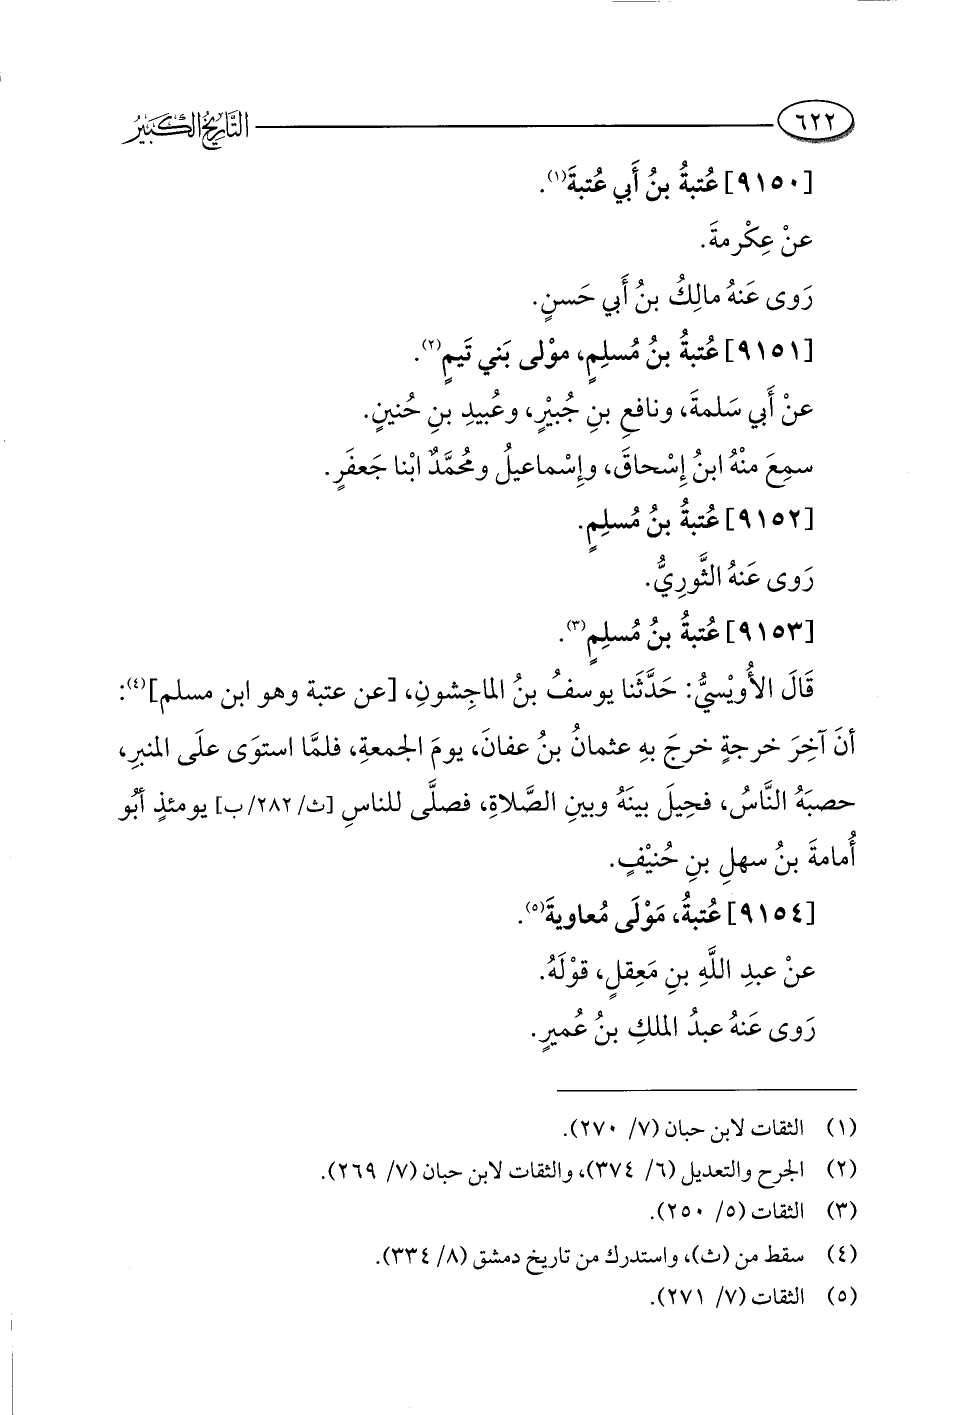 ٦٢٢ التَّارِيخُ الكَبِيرُ
[٩١٥٠] عُتبةُ بنُ أَبي عُتبةَ(١).
عنْ عِكْرمةَ.
رَوى عَنهُ مالِكُ بنُ أَبي حَسنٍ.
[٩١٥١] عُتبةُ بنُ مُسلِمٍ، موْلى بَني تَيمٍ(٢).
عنْ أَبي سَلمةَ، ونافعِ بنِ جُبيْرٍ، وعُبيدِ بنِ حُنينٍ.
سمِعَ منْهُ ابنُ إِسْحاقَ، وإِسْماعيلُ ومُحمَّدٌ ابْنا جَعفَرٍ.
[٩١٥٢] عُتبةُ بنُ مُسلِمٍ.
رَوى عَنهُ الثَّورِيُّ.
[٩١٥٣] عُتبةُ بنُ مُسلِمٍ(٣).
قَالَ الأُويْسيُّ: حَدَّثَنا يوسفُ بنُ الماجِشونِ، [عن عتبة وهو ابن مسلم](٤):
أنَ آخِرَ خرجةٍ خرجَ بهِ عثمانُ بنُ عفانَ، يومَ الجمعةِ، فلمَّا استوَى علَى المنبرِ،
حصبَهُ النَّاسُ، فحيلَ بينَهُ وبينِ الصَّلاةِ، فصلَّى للناسِ [ث/ ٢٨٢/ب] يومئذٍ أَبُو
أُمامةَ بنُ سهلِ بنِ حُنيْفٍ.
[٩١٥٤] عُتبةُ، مَوْلَى مُعاويةَ(٥).
عنْ عبدِ اللَّهِ بنِ مَعقلٍ، قوْلَهُ.
رَوى عَنهُ عبدُ الملكِ بنُ عُميرٍ.
(١) الثقات لابن حبان (٧/ ٢٧٠).
(٢) الجرح والتعديل (٦/ ٣٧٤)، والثقات لابن حبان (٧/ ٢٦٩).
(٣) الثقات (٥/ ٢٥٠).
(٤) سقط من (ث)، واستدرك من تاريخ دمشق (٨/ ٣٣٤).
(٥) الثقات (٧/ ٢٧١).